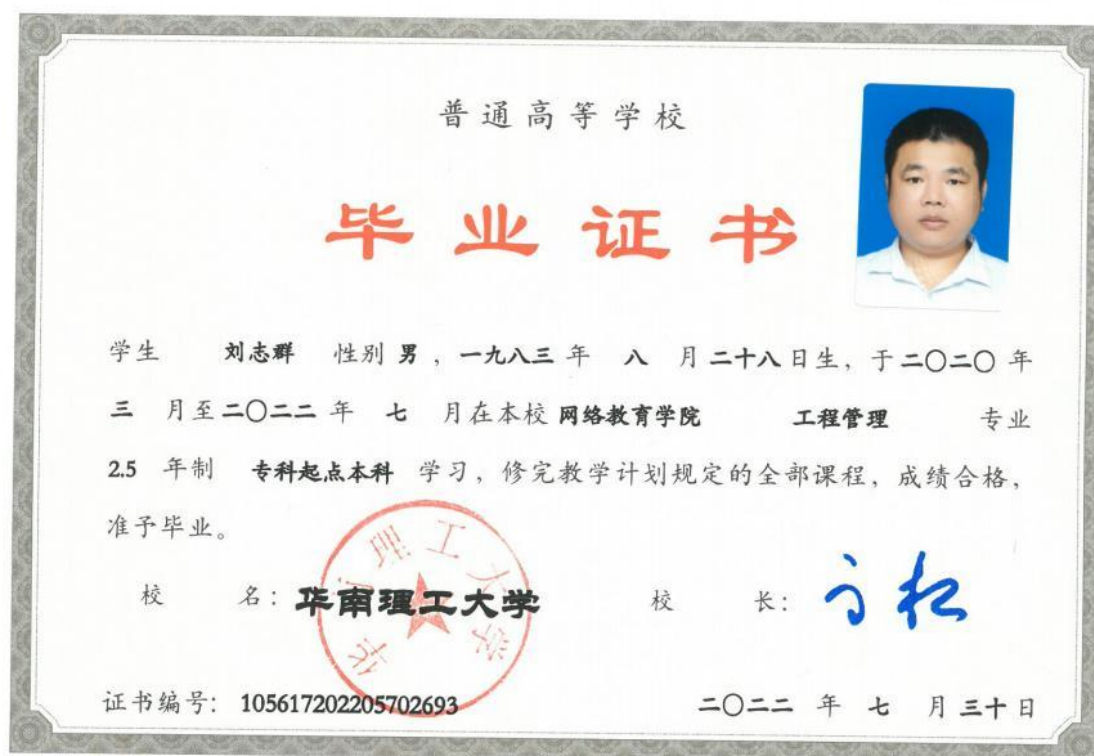 普通高等学校
毕业证书
学生 刘志群 性别 男，一九八三 年 八 月 二十八日生，于 二〇二〇 年
三 月至 二〇二二 年 七 月在本校 网络教育学院 工程管理 专业
2.5 年制 专科起点本科 学习，修完教学计划规定的全部课程，成绩合格，
准予毕业。
校 名：华南理工大学 校 长：
华南理工大学
证书编号：105617202205702693 二〇二二 年 七 月 三十 日